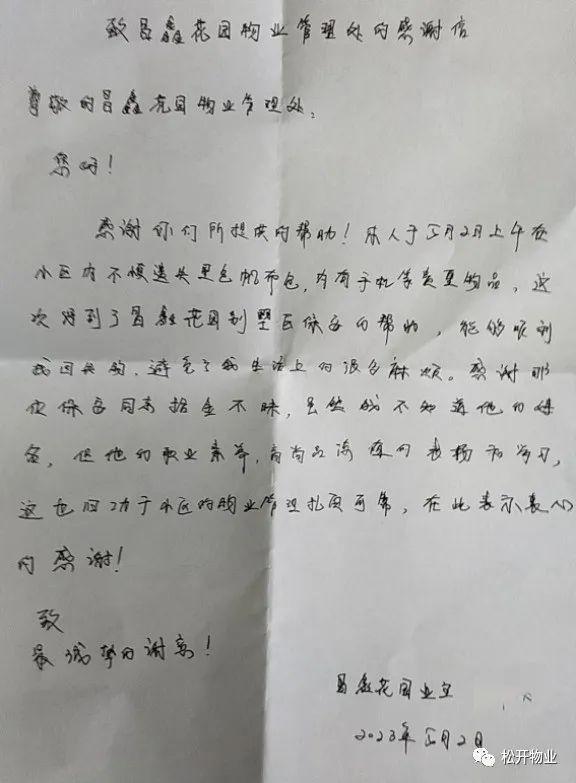 致昌鑫花园物业管理处的感谢信
尊敬的昌鑫花园物业管理处:
您好!
感谢你们所提供的帮助!本人于五月2日上午在
小区内不慎遗失黑色帆布包,内有手机等贵重物品,这
次得到了昌鑫花园别墅区保安的帮助,能够顺利
找回失物,避免了我生活上的很多麻烦。感谢那
位保安同志拾金不昧,虽然我不知道他的姓
名,但他的职业素养,高尚品德值得表扬和学习,
这也归功于小区的物业管理扎实可靠,在此表示衷心
的感谢!
致
最诚挚的谢意!
昌鑫花园业主
2023年五月2日
松开物业